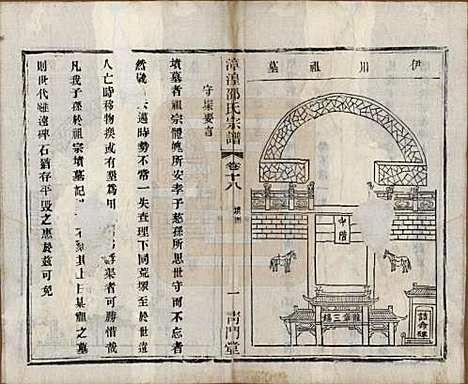 伊川祖墓
中階
龍章三錫
誥命碑
漳湟邵氏宗譜
卷十八
墳圖
一
青門堂
守塚要言
墳墓者祖宗體魄所安孝子慈孫所思世守而不忘者
然歲 過時勢不一失查理下同荒塚至於世遠
人亡時移物換或有 塋者可勝惜哉
凡我子孫於祖宗墳墓記 其上曰某龍之墓
則世代雖遠碑石猶存平毀之患於茲可免